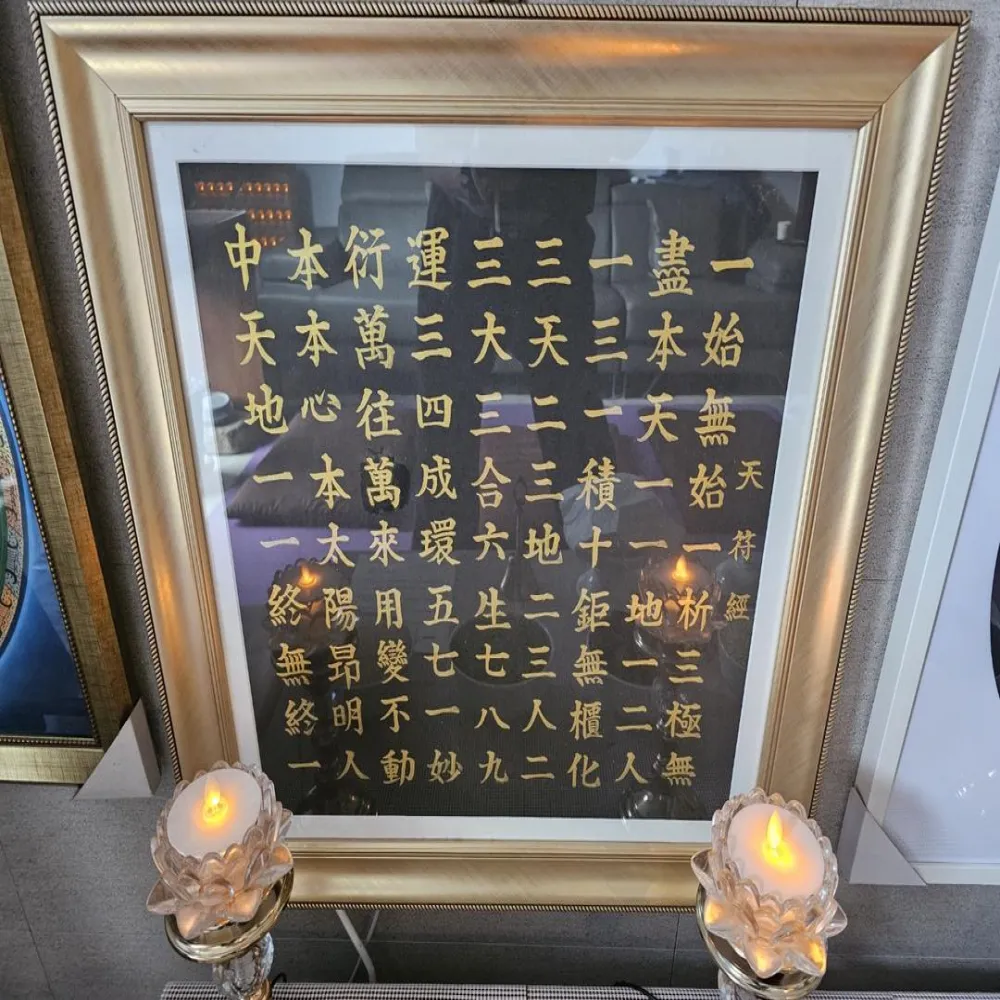 天符經
一始無始一析三極無
盡本天一一地一二人
一三一積十鉅無櫃化
三天二三地二三人二
三大三合六生七八九
運三四成環五七一妙
衍萬往萬來用變不動
本本心本太陽昂明人
中天地一一終無終一